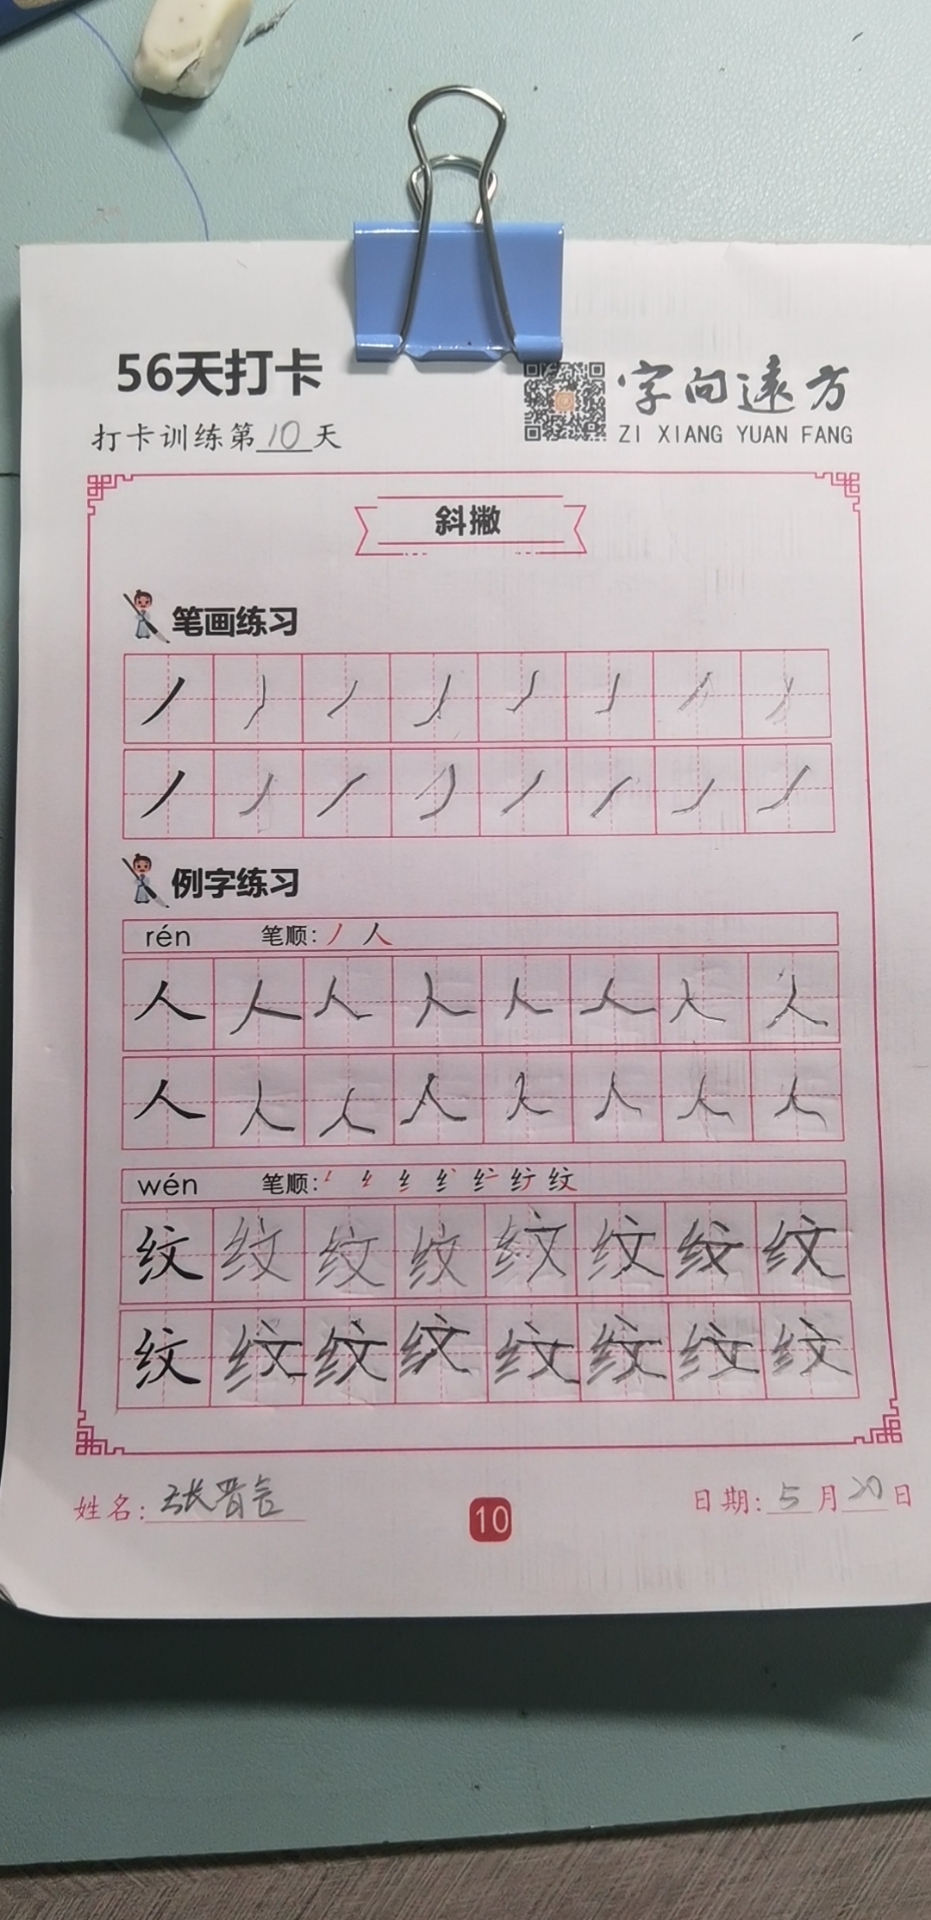 56天打卡
打卡训练第10天
字向远方
ZI XIANG YUAN FANG
斜撇
笔画练习
丿丿丿丿丿丿丿丿
丿丿丿丿丿丿丿丿
例字练习
rén 笔顺：丿 人
人人人人人人人人
人人人人人人人人
wén 笔顺： 纹
纹纹纹纹纹纹纹纹
纹纹纹纹纹纹纹纹
姓名：张晋
10
日期：5月20日